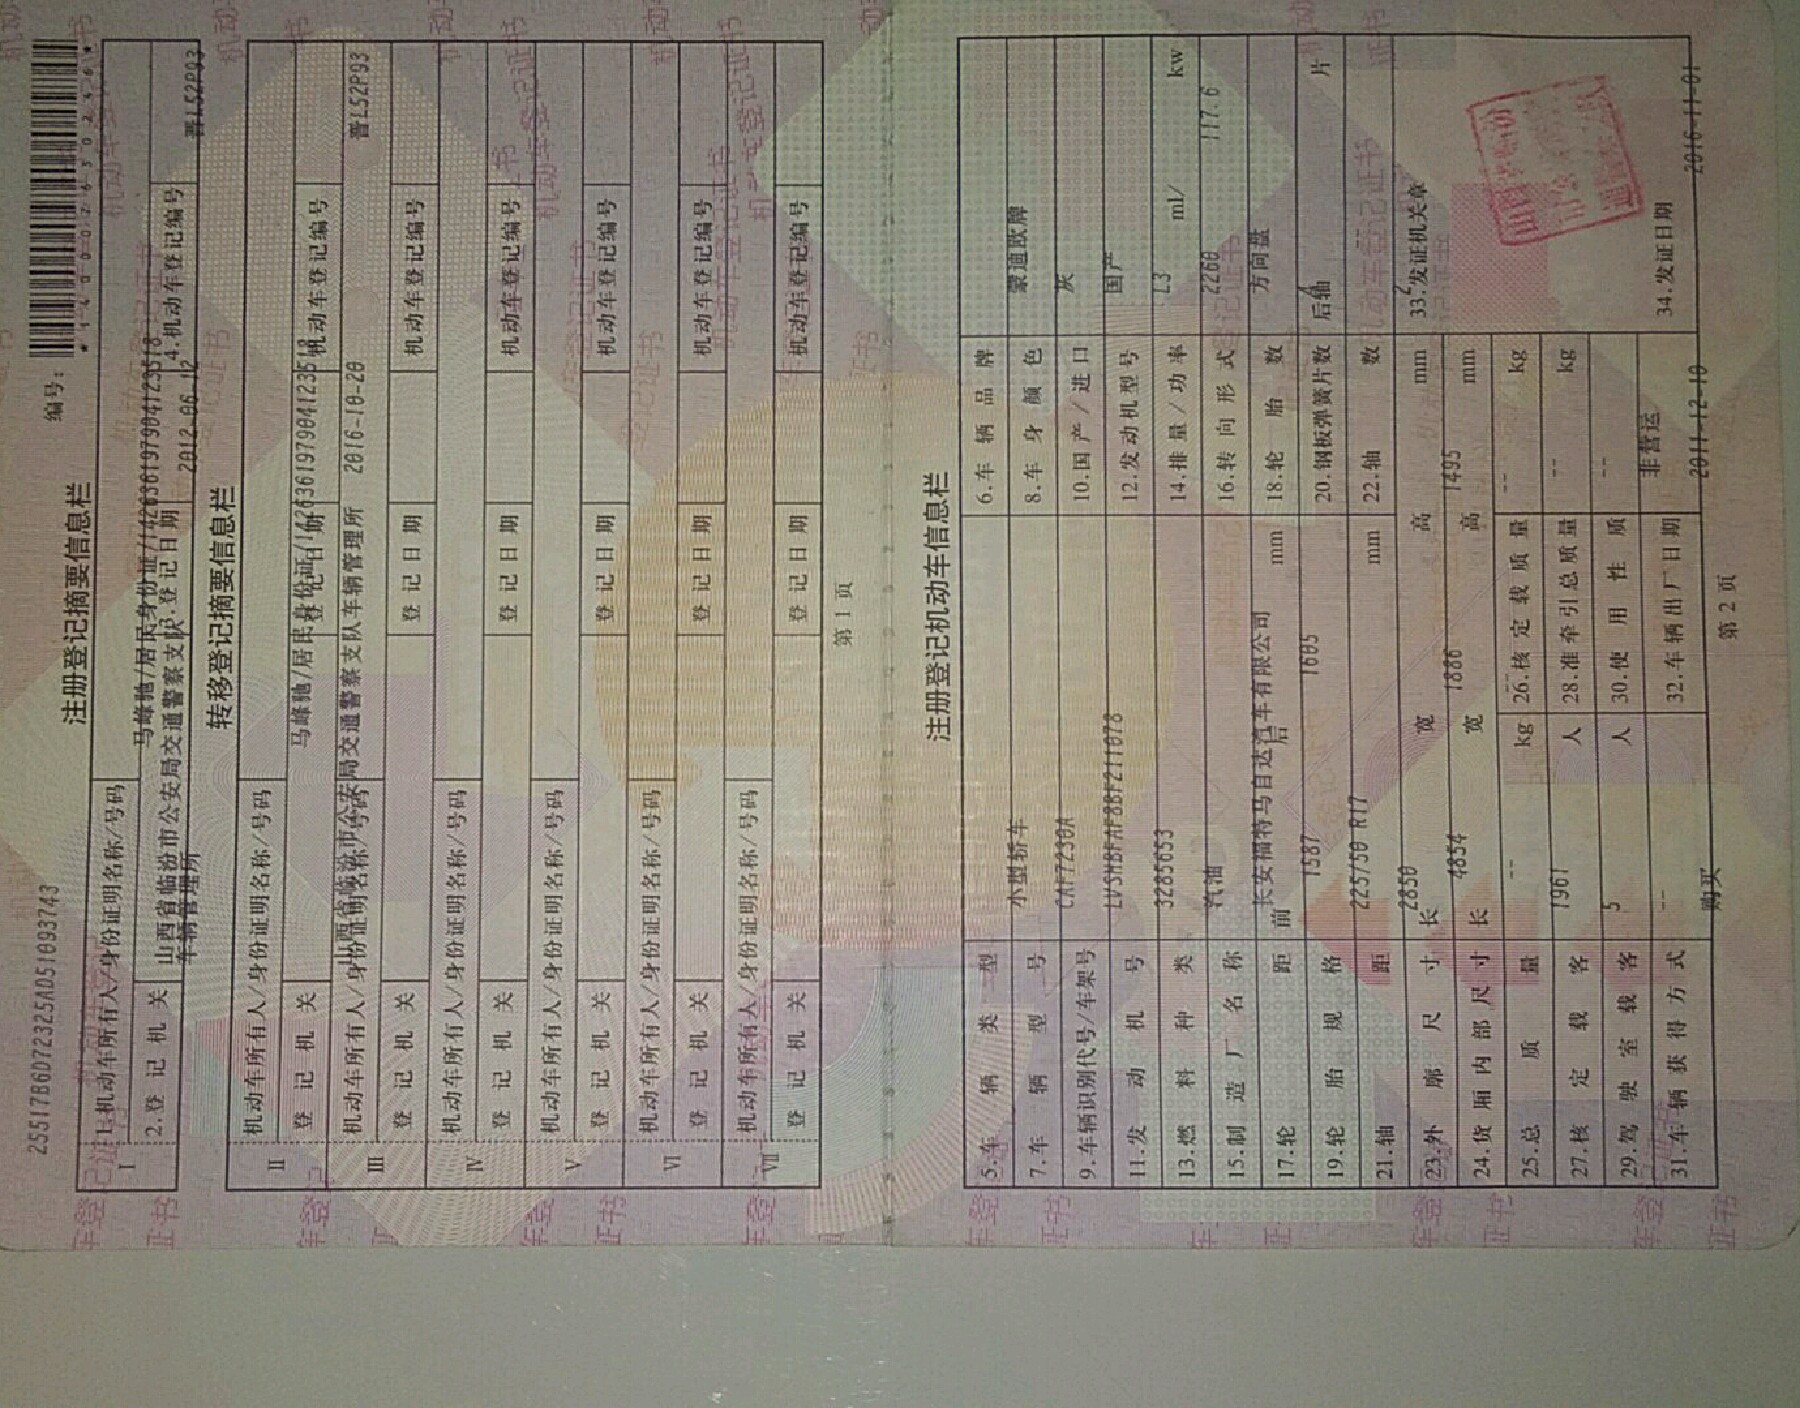 25517B6D72325AD51093743
编号：
*140002630246*
注册登记摘要信息栏
I
1.机动车所有人/身份证明名称/号码
马峰驰/居民身份证/142636197904123518
2.登记机关
山西省临汾市公安局交通警察支队车辆管理所
3.登记日期
2012-06-12
4.机动车登记编号
晋L52P93
转移登记摘要信息栏
II
机动车所有人/身份证明名称/号码
马峰驰/居民身份证/142636197904123518
登记机关
山西省临汾市公安局交通警察支队车辆管理所
登记日期
2016-10-20
机动车登记编号
晋L52P93
III
机动车所有人/身份证明名称/号码
登记机关 登记日期 机动车登记编号
IV
机动车所有人/身份证明名称/号码
登记机关 登记日期 机动车登记编号
V
机动车所有人/身份证明名称/号码
登记机关 登记日期 机动车登记编号
VI
机动车所有人/身份证明名称/号码
登记机关 登记日期 机动车登记编号
VII
机动车所有人/身份证明名称/号码
登记机关 登记日期 机动车登记编号
第 1 页
注册登记机动车信息栏
5.车辆类型 小型轿车 6.车辆品牌 蒙迪欧牌
7.车辆型号 CAF7230A 8.车身颜色 灰
9.车辆识别代号/车架号 LVSHBFAF8BF211078 10.国产/进口 国产
11.发动机号 3285653 12.发动机型号 L3
13.燃料种类 汽油 14.排量/功率 2260 ml/ 117.6 kw
15.制造厂名称 长安福特马自达汽车有限公司 16.转向形式 方向盘
17.轮距 前 1587 后 1605 mm 18.轮胎数 4
19.轮胎规格 225/50 R17 20.钢板弹簧片数 后轴 片
21.轴距 2850 mm 22.轴数 2
23.外廓尺寸 长 4854 宽 1886 高 1495 mm
33.发证机关章
24.货厢内部尺寸 长 宽 高 mm
25.总质量 kg 26.核定载质量 -- kg
27.核定载客 5 人 28.准牵引总质量 -- kg
29.驾驶室载客 -- 人 30.使用性质 非营运
31.车辆获得方式 购买 32.车辆出厂日期 2011-12-10
34.发证日期 2016-11-01
第 2 页